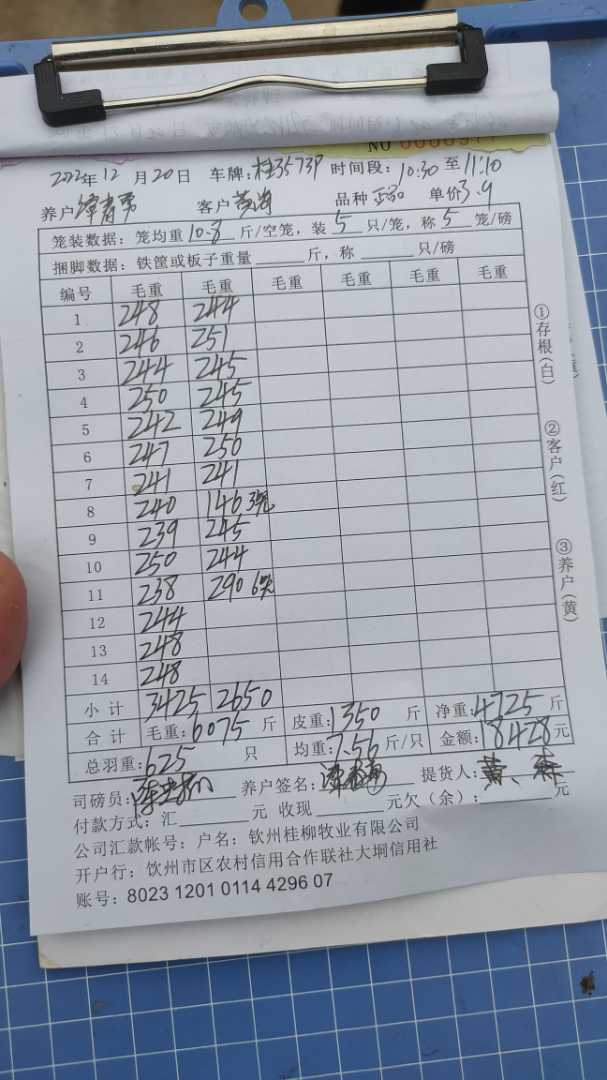 2022年12月20日 车牌:桂3573P 时间段:10:30至11:10
养户 客户 黄海 品种 正品 单价3.9
笼装数据:笼均重10.8斤/空笼,装5只/笼,称5笼/磅
捆脚数据:铁筐或板子重量 斤,称 只/磅
编号 毛重 毛重 毛重 毛重 毛重 毛重
1 248 244
2 246 251
3 244 245
4 250 245
5 242 249
6 247 250
7 241 241
8 240 146 3笼
9 239 245
10 250 244
11 238 290 6笼
12 244
13 248
14 248
小计 3425 2650
合计 毛重:6075斤 皮重:1350斤 净重:4725斤
总羽重:625只 均重:7.56斤/只 金额:18428元
司磅员: 养户签名: 提货人:黄
付款方式:汇 元 收现 元欠(余): 元
公司汇款帐号:户名:钦州桂柳牧业有限公司
开户行:饮州市区农村信用合作联社大垌信用社
账号:8023 1201 0114 4296 07
①存根(白)
②客户(红)
③养户(黄)